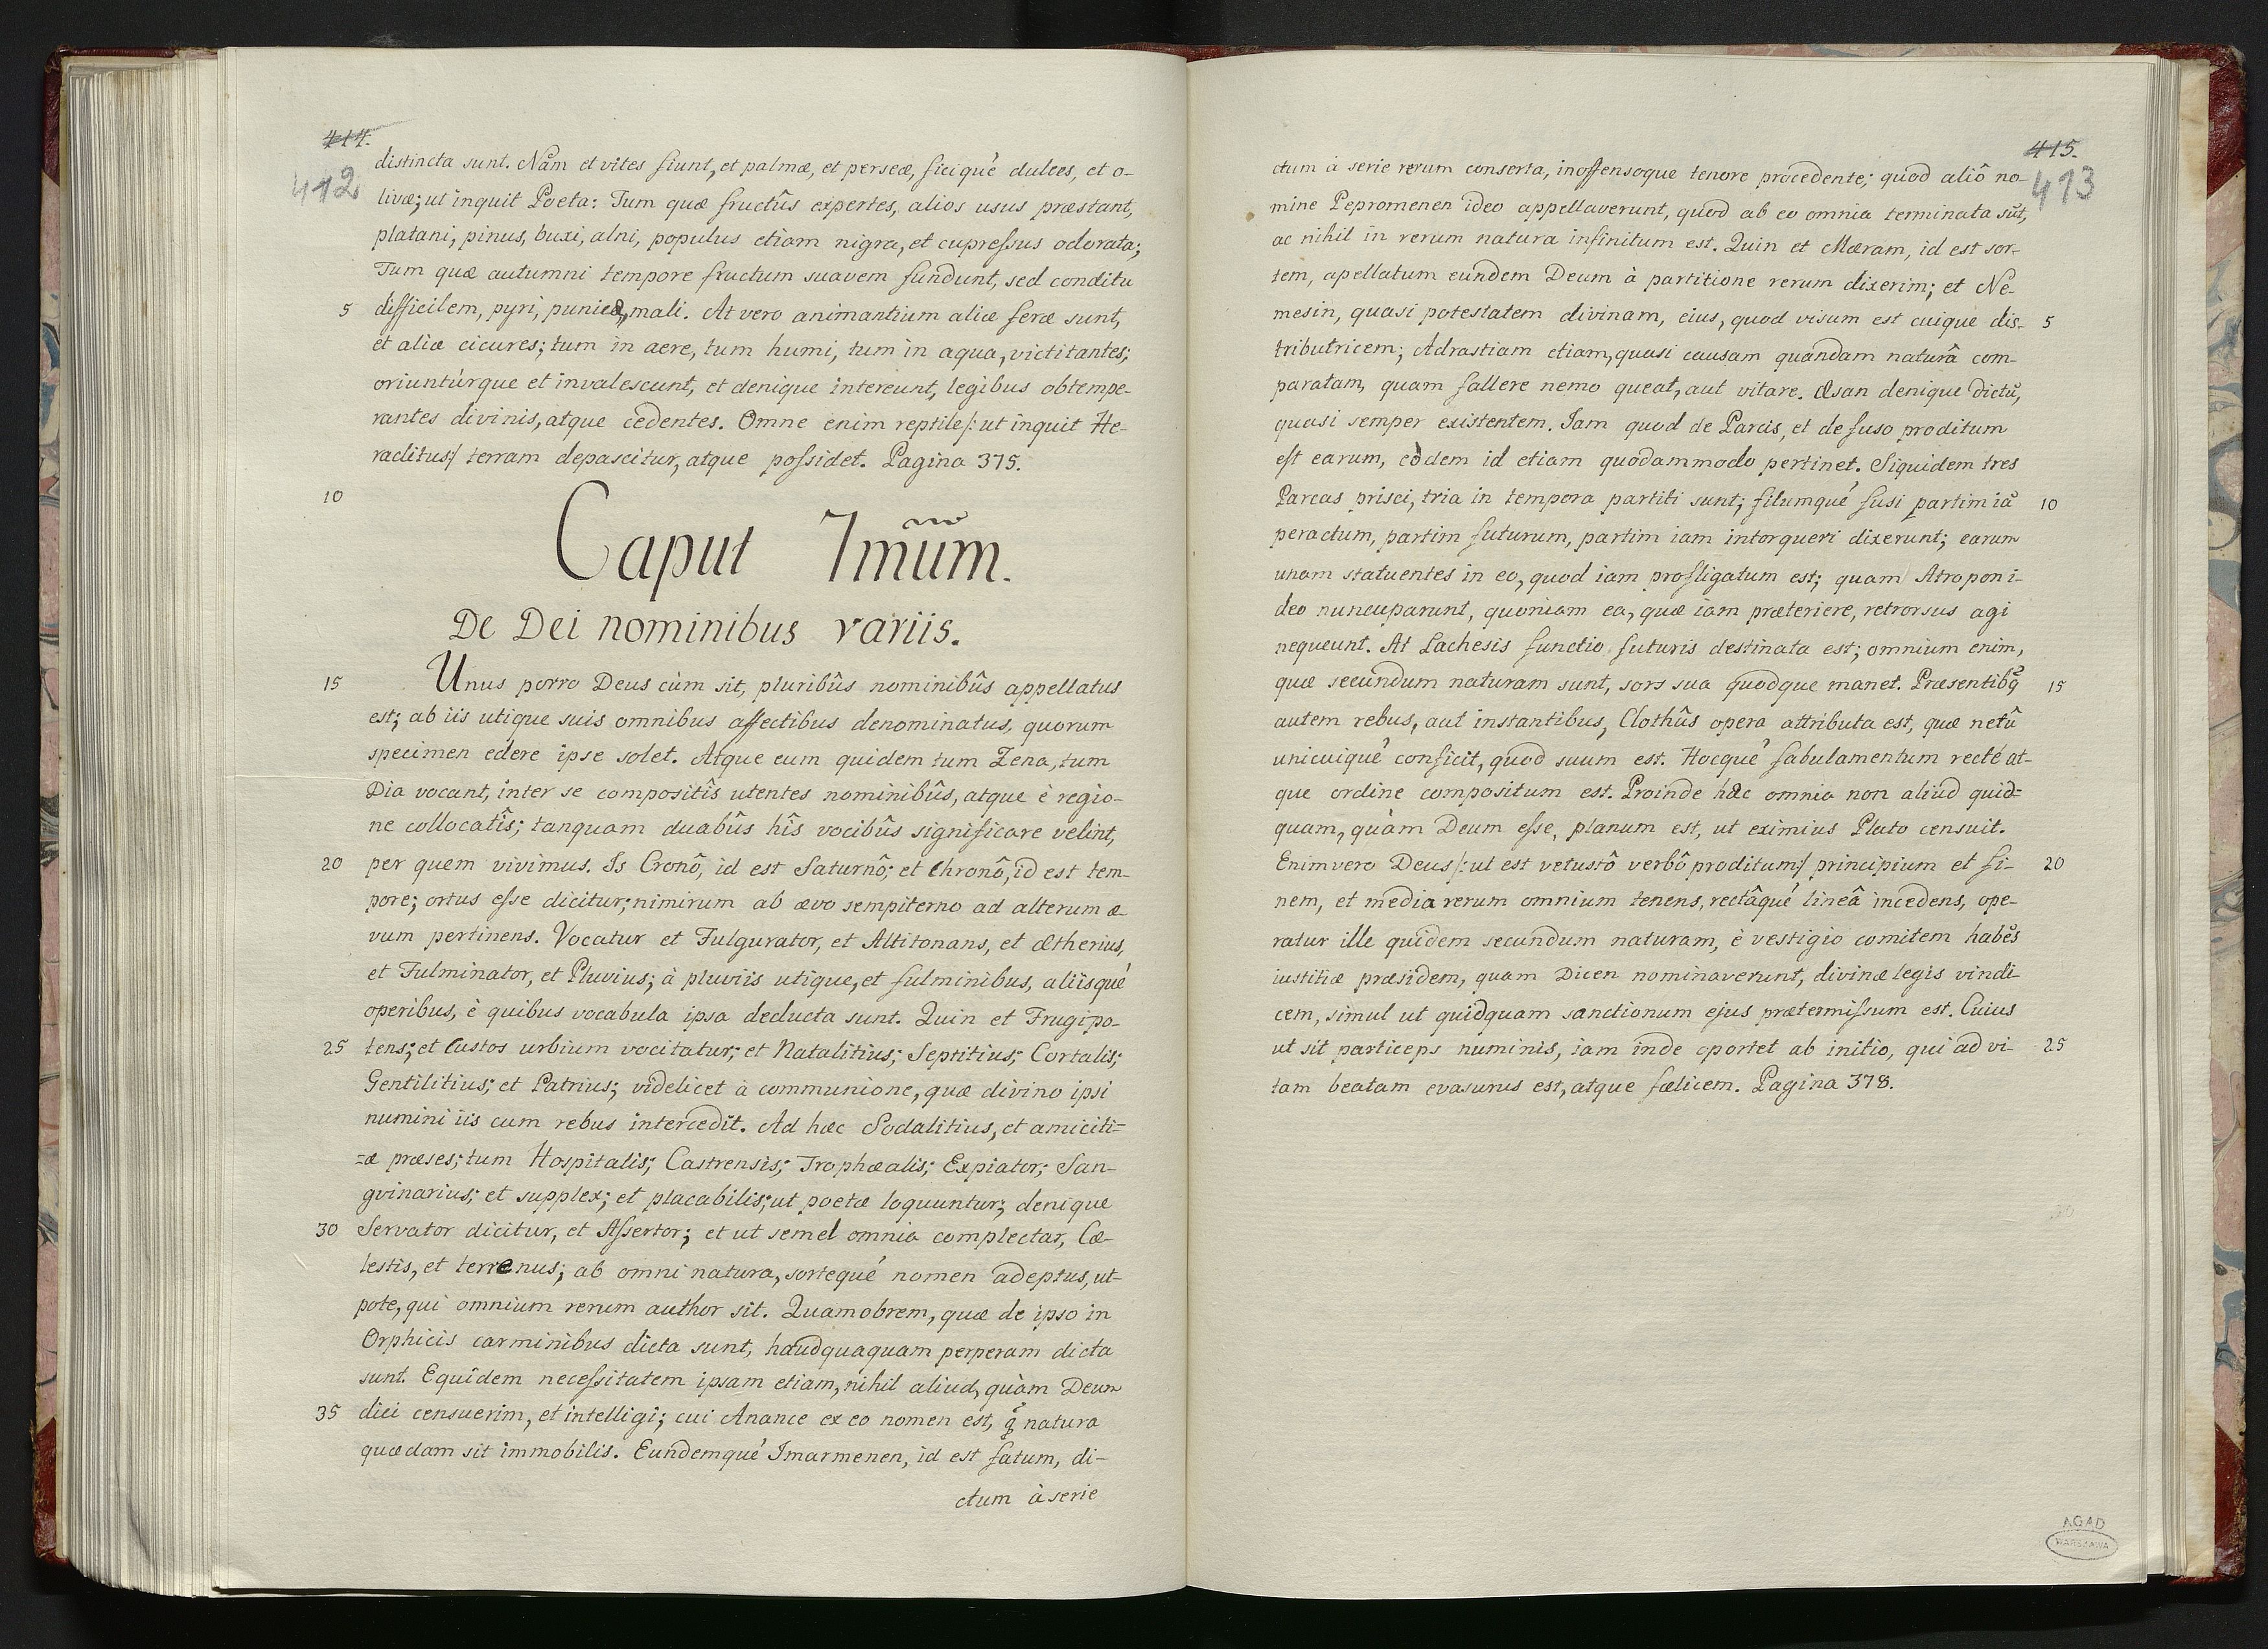 414.
412
distincta sunt. Nam et vites fiunt, et palmæ, et perseæ, ficiqué dulces, et o-
livæ; ut inquit Poeta: Tum quæ fructûs expertes, alios usus præstant,
platani, pinus, buxi, alni, populus etiam nigra, et cupressus odorata;
Tum quæ autumni tempore fructum suavem fundunt, sed conditu
5 difficilem, pyri, punicæ, mali. At vero animantium aliæ feræ sunt,
et aliæ cicures; tum in aere, tum humi, tum in aqua, victitantes;
oriuntúrque et invalescunt, et denique intereunt, legibus obtempe-
rantes divinis, atque cedentes. Omne enim reptile /: ut inquit He-
raclitus :/ terram depascitur, atque possidet. Pagina 375.
10
Caput Imũm.
De Dei nominibus variis.
15 Unus porro Deus cùm sit, pluribûs nominibûs appellatus
est; ab iis utique suis omnibus affectibus denominatus, quorum
specimen edere ipse solet. Atque eum quidem tum Zena, tum
Dia vocant, inter se compositîs utentes nominibûs, atque è regio-
ne collocatîs; tanquam duabûs hîs vocibûs significare velint,
20 per quem vivimus. Is Cronô, id est Saturnô; et Chronô, id est tem-
pore; ortus esse dicitur; nimirum ab ævo sempiterno ad alterum æ-
vum pertinens. Vocatur et Fulgurator, et Altitonans, et Ætherius,
et Fulminator, et Pluvius; à pluviis utique, et fulminibus, aliisqué
operibus, è quibus vocabula ipsa deducta sunt. Quin et Frugipo-
25 tens; et Custos urbium vocitatur; et Natalitius; Septitius; Cortalis;
Gentilitius; et Patrius; videlicet à communione, quæ divino ipsi
numini iis cum rebus intercedit. Ad hæc Sodalitius, et amiciti=
=æ præses; tum Hospitalis; Castrensis; Trophæalis; Expiator; San-
gvinarius; et supplex; et placabilis; ut poetæ loquuntur; denique
30 Servator dicitur, et Assertor; et ut semel omnia complectar, Cæ-
lestis, et terrenus; ab omni natura, sortequé nomen adeptus, ut-
pote, qui omnium rerum author sit. Quamobrem, quæ de ipso in
Orphicis carminibus dicta sunt, haudquaquam perperam dicta
sunt. Equidem necessitatem ipsam etiam, nihil aliud, quàm Deum
35 dici censuerim, et intelligi; cui Anance ex eo nomen est, q̃ natura
quædam sit immobilis. Eundemqué Imarmenen, id est fatum, di-
ctum à serie
415.
413
ctum à serie rerum conserta, inoffensoque tenore procedente; quod aliô no-
mine Pepromenen ideo appellaverunt, quod ab eo omnia terminata sũt,
ac nihil in rerum natura infinitum est. Quin et Mæram, id est sor-
tem, apellatum eundem Deum à partitione rerum dixerim; et Ne-
mesin, quasi potestatem divinam, eius, quod visum est cuique dis- 5
tributricem; Adrastiam etiam, quasi causam quandam naturâ com-
paratam, quam fallere nemo queat, aut vitare. Æsan denique dictũ,
quasi semper existentem. Iam quod de Parcis, et de fuso proditum
est earum, eòdem id etiam quodammodo pertinet. Siquidem tres
Parcas prisci, tria in tempora partiti sunt; filumqué fusi partim iã 10
peractum, partim futurum, partim iam intorqueri dixerunt; earum
unam statuentes in eo, quod iam profligatum est; quam Atropon i-
deo nuncuparunt, quoniam ea, quæ iam præteriere, retrorsus agi
nequeunt. At Lachesis functio futuris destinata est; omnium enim,
quæ secundum naturam sunt, sors sua quodque manet. Præsentibq̃ 15
autem rebus, aut instantibus, Clothûs opera attributa est, quæ netû
unicuiqué conficit, quod suum est. Hocqué fabulamentum recté at-
que ordine compositum est. Proinde hæc omnia non aliud quid=
quam, quàm Deum esse, planum est, ut eximius Plato censuit.
Enimvero Deus /: ut est vetustô verbô proditum :/ principium et fi- 20
nem, et media rerum omnium tenens, rectâqué lineâ incedens, ope-
ratur ille quidem secundum naturam, è vestigio comitem habẽs
iustitiæ præsidem, quam Dicen nominaverunt, divinæ legis vindi-
cem, simul ut quidquam sanctionum ejus prætermissum est. Cuius
ut sit particeps numinis, iam inde oportet ab initio, qui ad vi- 25
tam beatam evasurus est, atque fælicem. Pagina 378.
AGAD
WARSZAWA